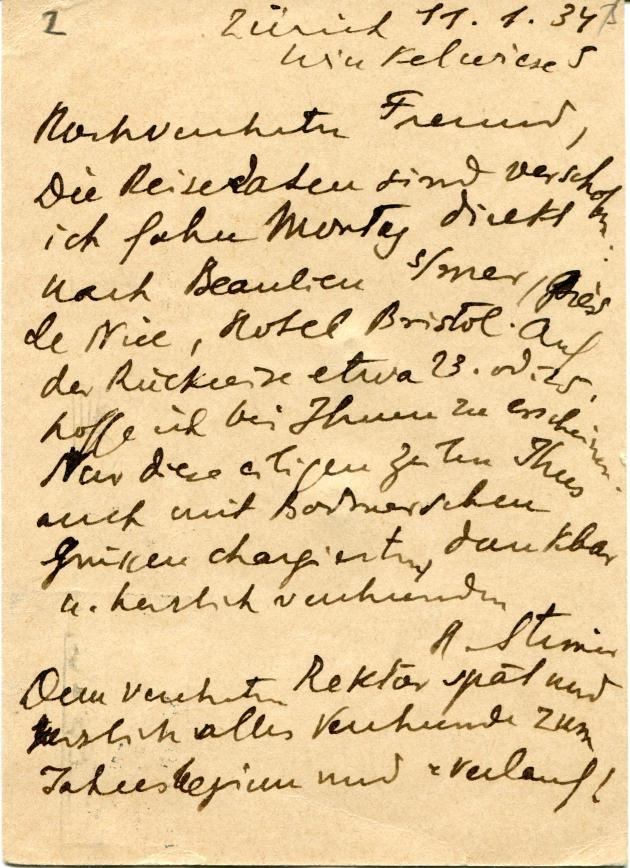 2
Zürich 11. 1. 34
Winkelwiese 5
Hochverehrter Freund,
Die Reisedaten sind verschoben:
ich fahre Montag direkt
nach Beaulieu s/mer, près
de Nice, Hotel Bristol. Auf
der Rückreise etwa 23. od. 25.
hoffe ich bei Ihnen zu erscheinen.
Nur diese eiligen Zeilen Ihres
auch mit Bodmerschen
Grüssen chargierten, dankbar
u. herzlich verehrenden
Dem verehrten Rektor spät und
herzlich alles Verehrende zum
Jahresbeginn und -verlauf!